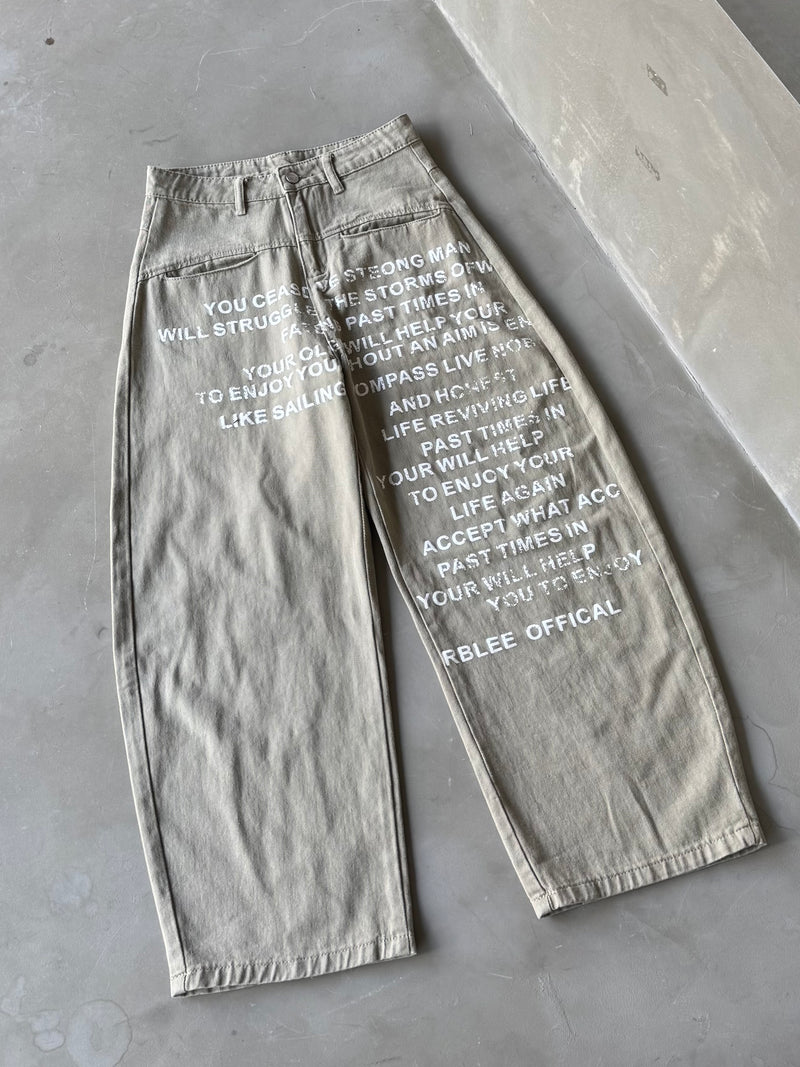 YOU CEAS VE STEONG MAN
WILL STRUGGLE THE STORMS OFW
PAST TIMES IN
YOUR OL WILL HELP YOUR
TO ENJOY YOU HOUT AN AIM IS EN
LIKE SAILING OMPASS LIVE NOB
AND HONEST
LIFE REVIVING LIFE
PAST TIMES IN
YOUR WILL HELP
TO ENJOY YOUR
LIFE AGAIN
ACCEPT WHAT ACC
PAST TIMES IN
YOUR WILL HELP
YOU TO ENJOY
RBLEE OFFICAL